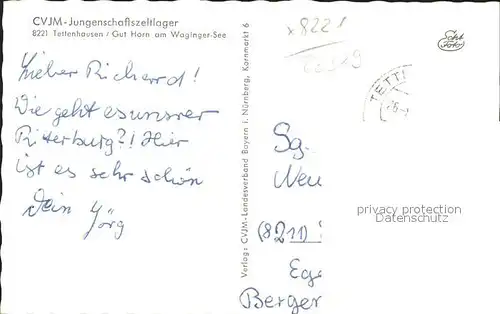 CVJM-Jungenschaftszeltlager
8221 Tettenhausen / Gut Horn am Waginger-See
Lieber Richard!
Wie geht es unsrer
Ritterburg?! Hier
ist es sehr schön
Dein Jörg
Verlag: CVJM-Landesverband Bayern i. Nürnberg, Kornmarkt 6
x 8221
Echt
Foto
TETT
Sg.
Neu
(8211)
Egg
Berger
privacy protection
Datenschutz